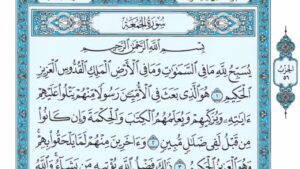 سُورَةُ الْجُمُعَةِ
بِسْمِ اللَّهِ الرَّحْمَٰنِ الرَّحِيمِ
يُسَبِّحُ لِلَّهِ مَا فِي السَّمَٰوَٰتِ وَمَا فِي الْأَرْضِ الْمَلِكِ الْقُدُّوسِ الْعَزِيزِ
الْحَكِيمِ ١ هُوَ الَّذِي بَعَثَ فِي الْأُمِّيِّينَ رَسُولًا مِّنْهُمْ يَتْلُوا عَلَيْهِمْ
ءَايَٰتِهِ وَيُزَكِّيهِمْ وَيُعَلِّمُهُمُ الْكِتَٰبَ وَالْحِكْمَةَ وَإِن كَانُوا
مِن قَبْلُ لَفِي ضَلَٰلٍ مُّبِينٍ ٢ وَءَاخَرِينَ مِنْهُمْ لَمَّا يَلْحَقُوا بِهِمْ
وَهُوَ الْعَزِيزُ الْحَكِيمُ ٣ ذَٰلِكَ فَضْلُ اللَّهِ يُؤْتِيهِ مَن يَشَاءُ وَاللَّهُ
الحزب
٥٦